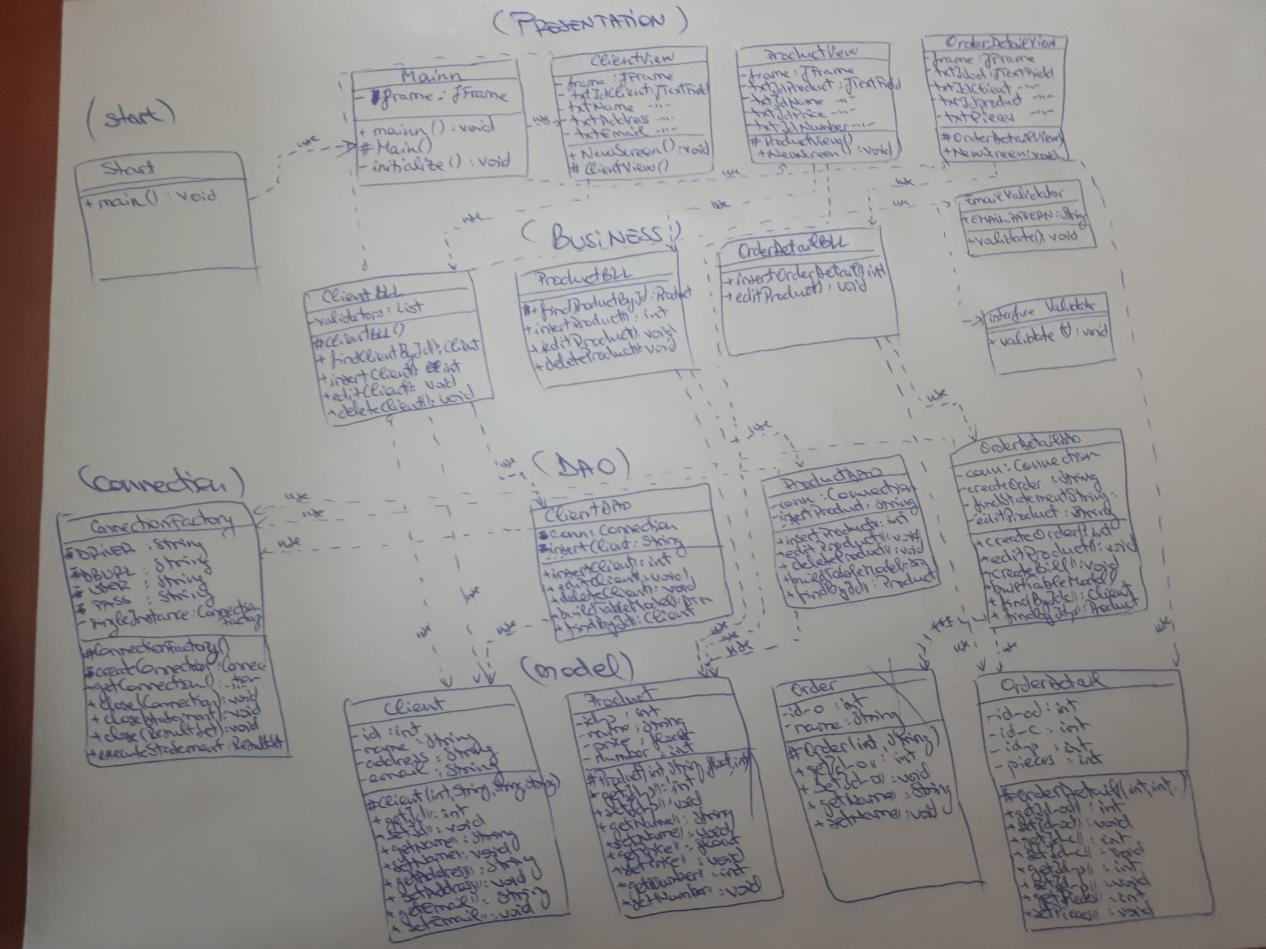 (PRESENTATION)
Mainn
- frame : JFrame
+ mainn() : void
# Main()
- initialize() : void
ClientView
- frame : JFrame
- txtIdClient : JTextField
- txtName -"-
- txtAddress -"-
- txtEmail -"-
+ NewScreen() : void
# ClientView()
ProductView
- frame : JFrame
- txtIdProduct : JTextField
- txtIdName -"-
- txtIdPrice -"-
- txtIdNumber -"-
# ProductView()
+ NewScreen() : void
OrderDetailView
- frame : JFrame
- txtIdod : JTextField
- txtIdClient -"-
- txtIdproduct -"-
- txtPieces -"-
# OrderDetailView()
+ NewScreen : void
(start)
Start
+ main() : void
use
use
use
use
use
use
use
(BUSINESS)
ClientBLL
- validators : List
# ClientBLL()
+ findClientById() : Client
+ insertClient() : int
+ editClient() : void
+ deleteClient() : void
ProductBLL
+ findProductById : Product
+ insertProduct() : int
+ editProduct() : void
+ deleteProduct() : void
OrderDetailBLL
+ insertOrderDetail() : int
+ editProduct() : void
EmailValidator
EMAIL_PATERN : String
+ validate() : void
interface Validate
+ validate (t) : void
use
use
use
use
use
(Connection)
ConnectionFactory
DRIVER : String
DBURL : String
USER : String
PASS : String
- singleInstance : Connection
Factory
# ConnectionFactory()
createConnection : Connec
+ getConnection() : tion
+ close(Connection) : void
+ close(Statement) : void
+ close(ResultSet) : void
+ executeStatement : ResultSet
(DAO)
ClientDAO
conn : Connection
insertClient : String
+ insertClient : int
+ editClient() : void
+ deleteClient() : void
+ buildTableModel :
+ findById() : Client
ProductDAO
- conn : Connection
- insertProduct : String
+ insertProduct() : int
+ editProduct() : void
+ deleteProduct() : void
+ buildTableModel :
+ findById() : Product
OrderDetailDAO
- conn : Connection
- createOrder : String
- findStatementString :
- editProduct : String
+ createOrder() : int
+ editProduct() : void
+ createBill() : void
+ buildTableModel
+ findByIdc() : Client
+ findByIdp : Product
use
use
use
use
use
use
(model)
Client
- id : int
- name : String
- address : String
- email : String
# Client(int, String, String, String)
+ getId() : int
+ setId() : void
+ getName : String
+ setName : void
+ getAddress() : String
+ setAddress() : void
+ getEmail() : String
+ setEmail() : void
Product
- id-p : int
- name : String
- price : float
- number : int
# Product(int, String, float, int)
+ getId() : int
+ setId() : void
+ getName() : String
+ setName() : void
+ getPrice() : float
+ setPrice() : void
+ getNumber() : int
+ setNumber() : void
Order
- id-o : int
- name : String
# Order(int, String)
+ getId-o() : int
+ setId-o() : void
+ getName() : String
+ setName() : void
OrderDetail
- id-od : int
- id-c : int
- id-p : int
- pieces : int
# OrderDetail(int, int,
+ getId-od() : int
+ setPieces() : void